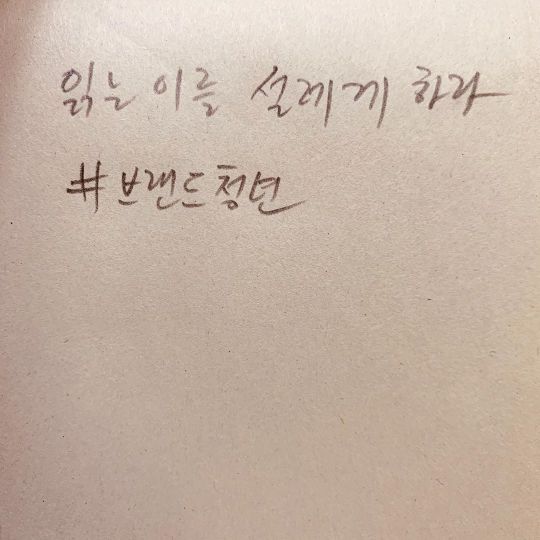 읽는 이를 설레게 하라
#브랜드청년